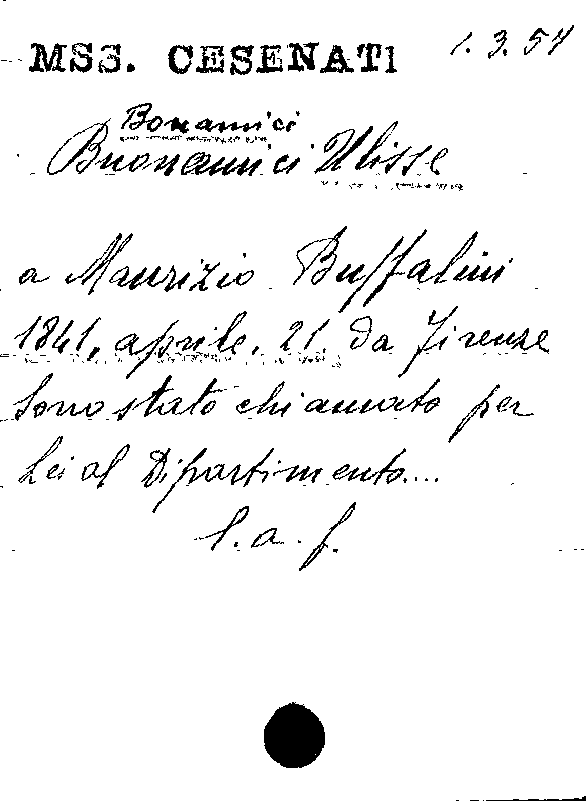 MSS. CESENATI 1.3.54
Bonamici
Buonamici Ulisse
a Maurizio Buffalini
1841, aprile, 21. da Firenze
Sono stato chiamato per
Lei al Dipartimento....
l.a.f.